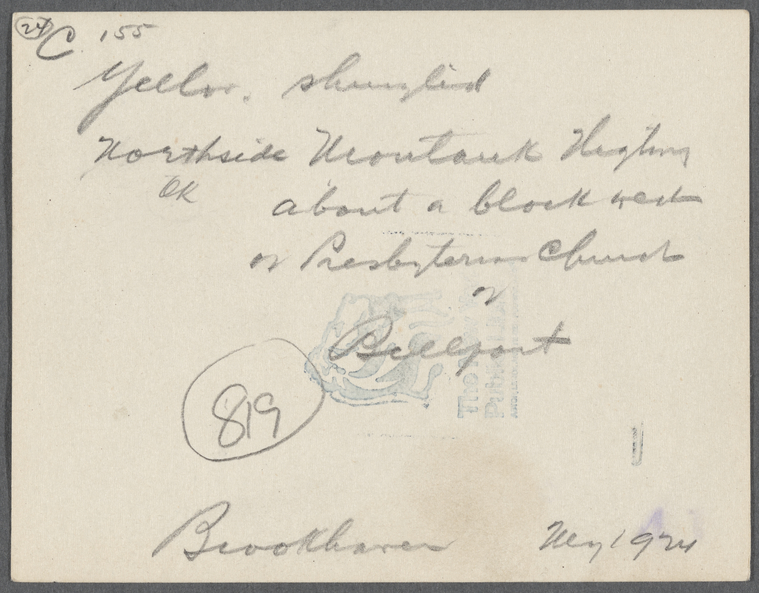 24 C 155
Yellow. shingled
Northside Montauk Highway
OK about a block west
of Presbyterian Church
or
Bellport
819
Brookhaven May 1924